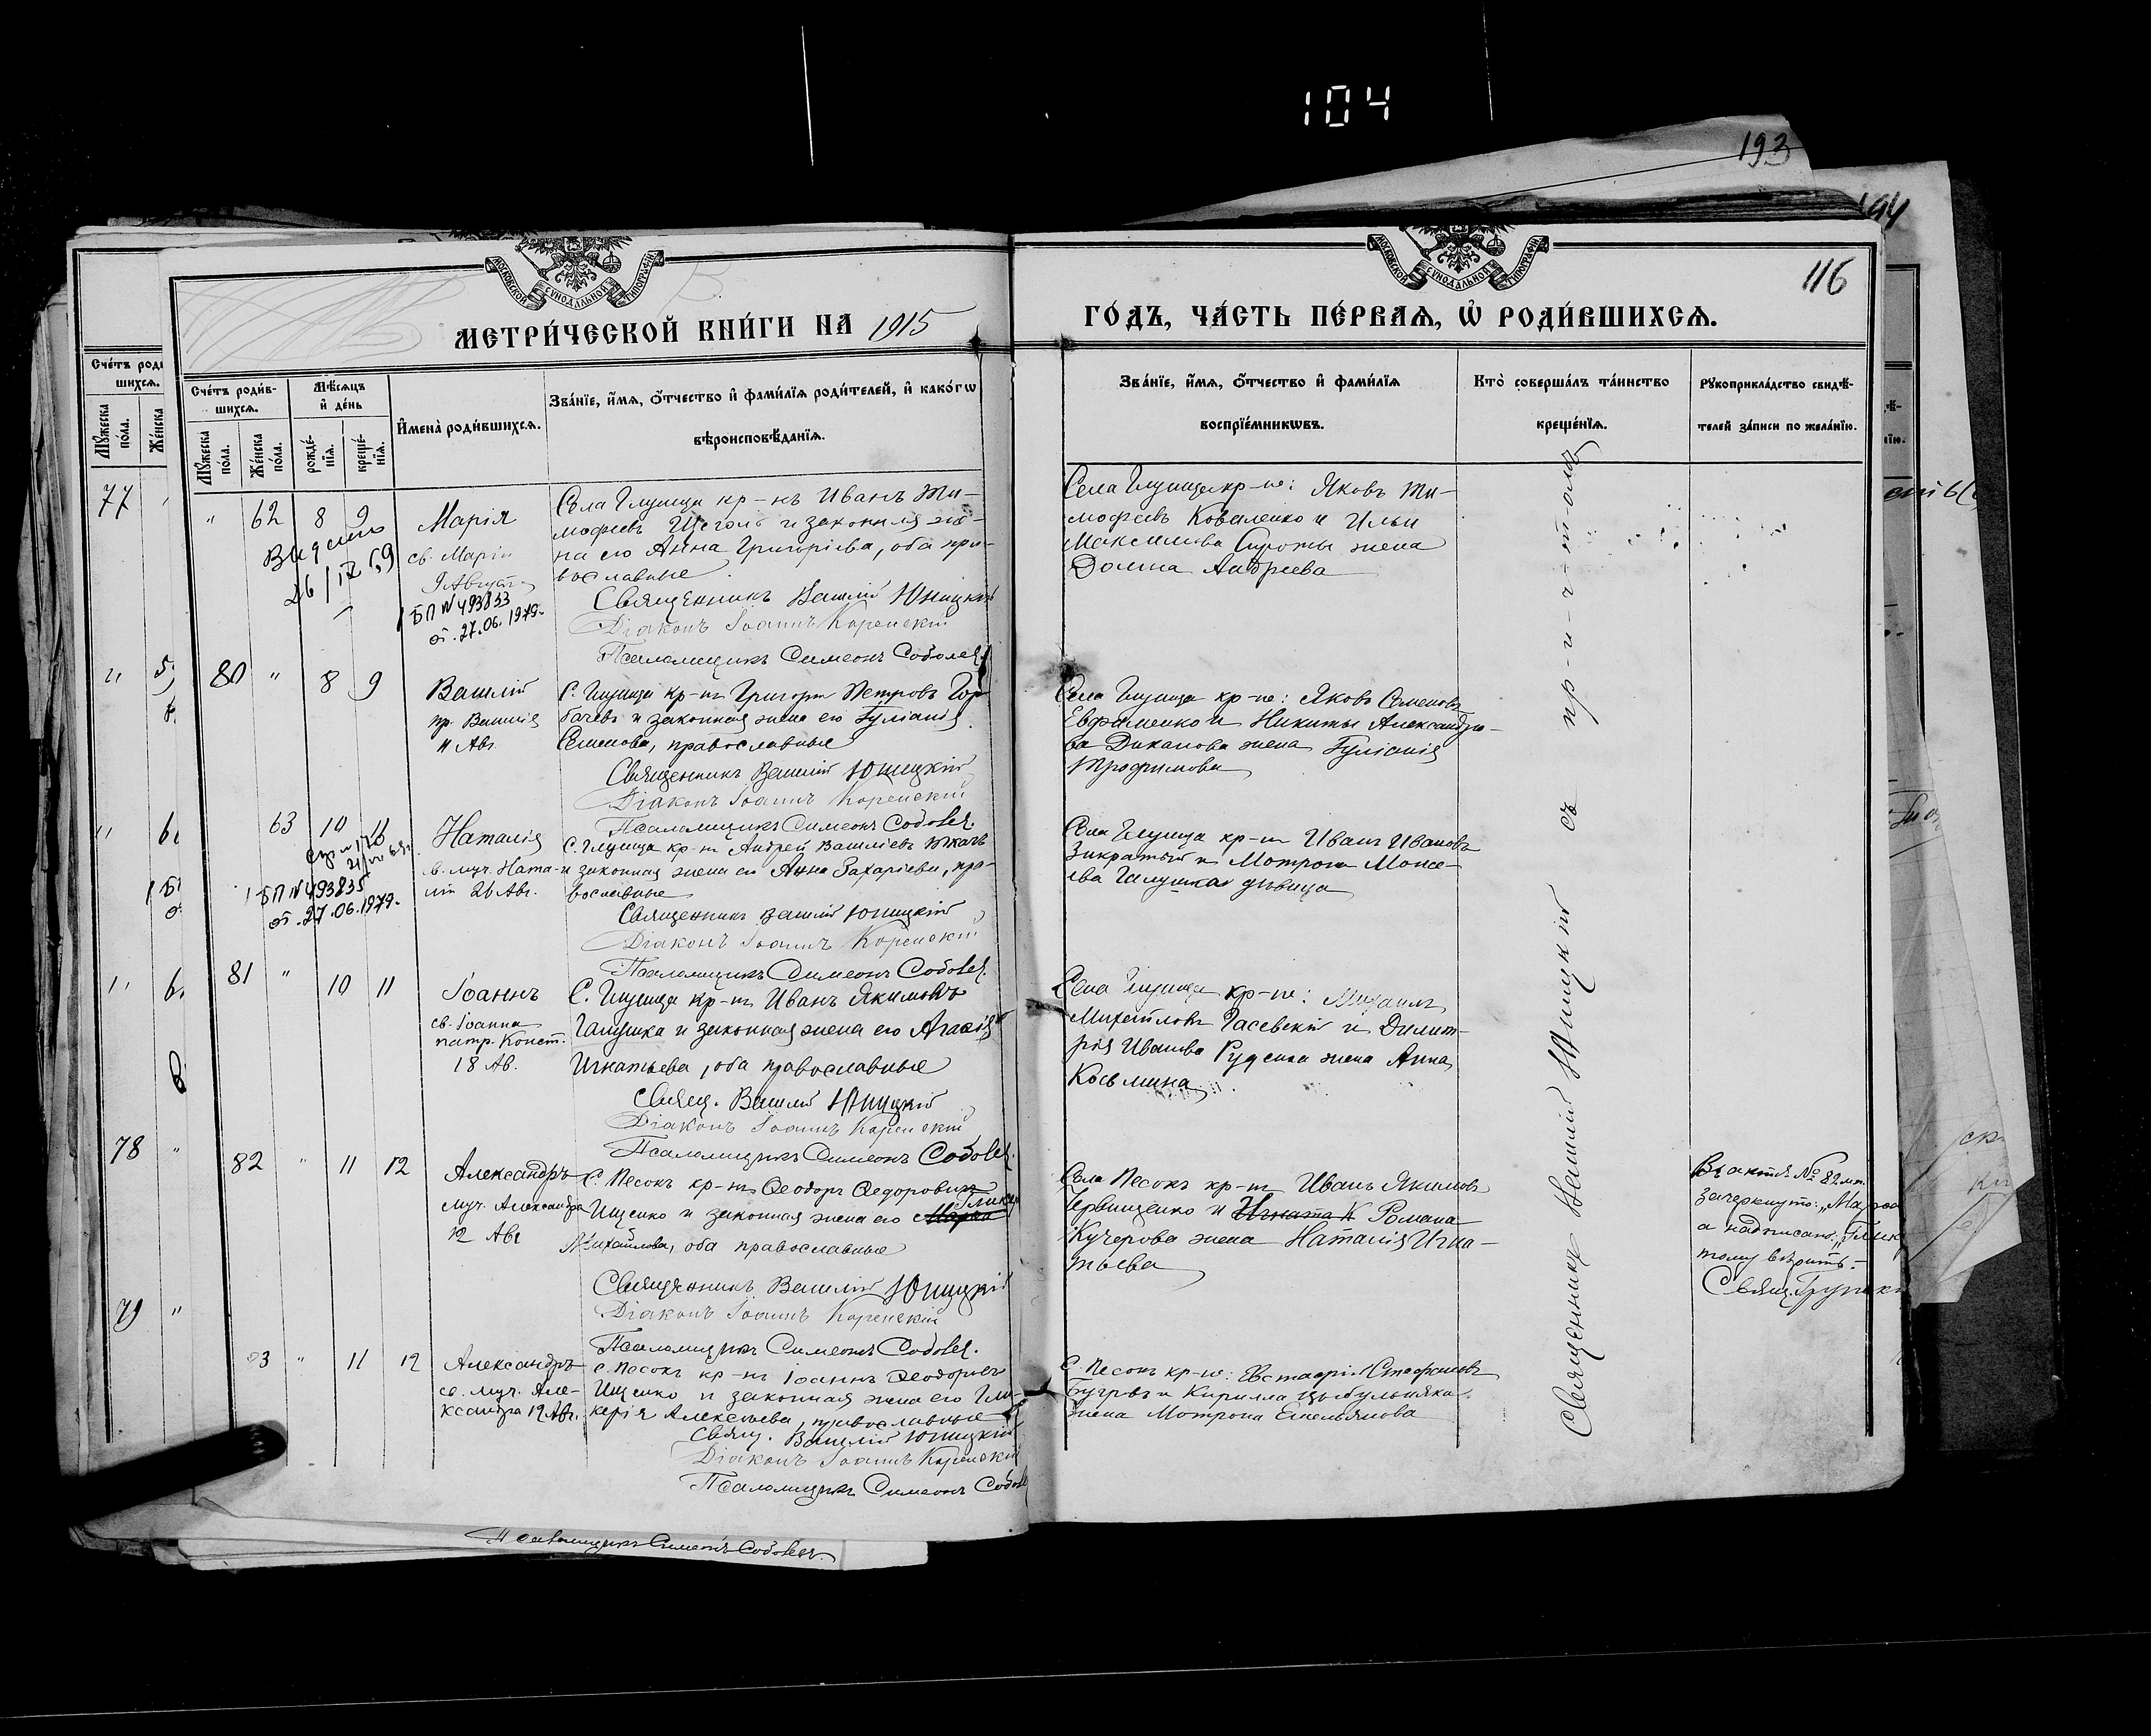 104
193
194
116
МОСКОВСКОЙ СУНОДАЛЬНОЙ ТИПОГРАФІИ
МОСКОВСКОЙ СУНОДАЛЬНОЙ ТИПОГРАФІИ
МЕТРИ́ЧЕСКОЙ КНИ́ГИ НА 1915
ГО́ДЪ, ЧА́СТЬ ПЕ́РВАЯ, Ѡ҆ РОДИ́ВШИХСЯ.
Сче́тъ роди́в-
шихся.
Мꙋ́жеска
по́ла.
Же́нска
по́ла.
Мѣ́сяцъ
и҆ де́нь
рожде́-
нїя.
креще́-
нїя.
И҆мена̀ роди́вшихся.
Зва́нїе, и҆́мя, ѻ҆́тчество и҆ фами́лїя роди́телей, и҆ како́гѡ
вѣроисповѣ́данїя.
Зва́нїе, и҆́мя, ѻ҆́тчество и҆ фами́лїя
воспрїе́мникѡвъ.
Кто̀ соверша́лъ та́инство
креще́нїя.
Рꙋкоприкла́дство свидѣ́-
телей за́писи по жела́нїю.
" 62 8 9
Марія
св. Маріи
9 Август.
Выдано
26/IX 59
1 БП N 493833
от. 27.06.1979.
Села Глушца кр-нъ Иванъ Ти-
мофеевъ Щеголь и законная же-
на его Анна Григоріева, оба пра-
вославные
Священникъ Василій Юницкій
Діаконъ Іоаннъ Коренскій
Псаломщикъ Симеонъ Соболев
Села Глушца кр-не: Яковъ Ти-
мофеевъ Коваленко и Ильи
Максимова Сироты жена
Домна Андреева
80 " 8 9
Василій
пр. Василія
11 Авг.
С. Глушца кр-нъ Григорій Петровъ Гор-
бачевъ и законная жена его Іуліанія
Семенова, православные
Священникъ Василій Юницкій
Діаконъ Іоаннъ Коренскій
Псаломщикъ Симеонъ Соболев.
Села Глушца кр-не: Яковъ Семеновъ
Евфименко и Никиты Александро-
ва Диканова жена Іуліанія
Трофимова
63 10 11
Наталія
в. муч. Ната-
ліи 26 Авг.
1 БП N 493835
от. 27.06.1979.
С. Глушца кр-нъ Андрей Василіевъ Ткачъ
и законная жена его Анна Захаріева, пра-
вославные
Священникъ Василій Юницкій
Діаконъ Іоаннъ Коренскій
Псаломщикъ Симеонъ Соболев.
Села Глушца кр-нъ Иванъ Ивановъ
Закратый и Мотрона Моисе-
ева Галушка дѣвица
81 " 10 11
Іоаннъ
св. Іоанна
патр. Конст.
18 Ав.
С. Глушца кр-нъ Иванъ Якимовъ
Галушка и законная жена его Агафія
Игнатьева, оба православные
Свящ. Василій Юницкій
Діаконъ Іоаннъ Коренскій
Псаломщикъ Симеонъ Соболев.
Села Глушца кр-не: Михаилъ
Михайловъ Гасевскій и Димит-
рія Иванова Руденка жена Анна
Косьмина
82 " 11 12
Александръ
муч. Александра
12 Авг
С. Песокъ кр-нъ Ѳеодоръ Ѳедоровичъ
Ищенко и законная жена его Марѳа Гликер
Михайлова, оба православные
Священникъ Василій Юницкій
Діаконъ Іоаннъ Коренскій
Псаломщикъ Симеонъ Соболев.
Села Песокъ кр-нъ Иванъ Якимовъ
Червищенко и Игната К Романа
Кучерова жена Наталія Игна-
тьева
Въ актѣ № 82 мп.
зачеркнуто: „Марѳа
а надписано: „Глик
тому вѣрить.-
Свящ.
83 " 11 12
Александръ
св. муч. Але-
ксандра 12 Авг.
С. Песокъ кр-нъ Іоаннъ Ѳеодоріевъ
Ищенко и законная жена его Гли-
керія Алексѣева, православные
Свящ. Василій Юницкій
Діаконъ Іоаннъ Коренскій
Псаломщикъ Симеонъ Собол
С. Песокъ кр-не: Евстафій Стефановъ
Бугровъ и Кирилла Цыбульняка
жена Мотрона Емельянова
Священникъ Василій Юницкій съ пр-и-ч-томъ
Псаломщикъ Симеонъ Соболев.
Сче́тъ роди
шихся.
Мꙋ́жеска
по́ла.
Же́нска
77
78
79